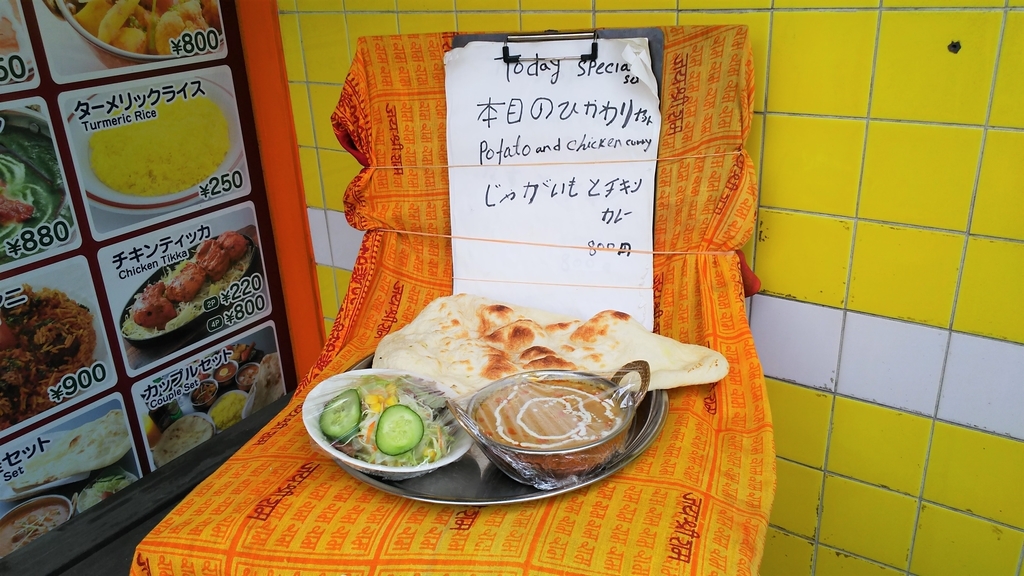 50
¥800
ターメリックライス
Turmeric Rice
¥250
¥880
チキンティッカ
Chicken Tikka
2P ¥220
4P ¥800
ニ
¥900
カップルセット
Couple Set
セット
Set
Today special
set
本日のひがわりセット
Potato and chicken curry
じゃがいもとチキン
カレー
800円